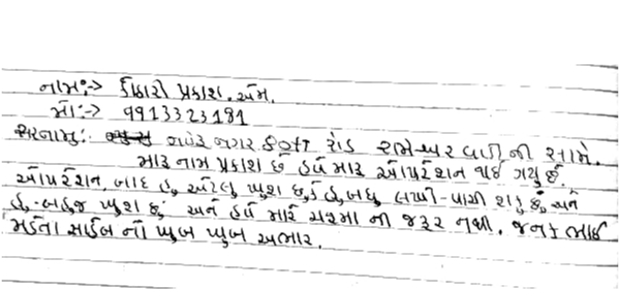 નામઃ-> કોઠારી પ્રકાશ. એમ.
મોઃ-> 9913323181
સરનામુઃ નગર 80ft રોડ વાડી ની સામે.
મારૂ નામ પ્રકાશ છે હવે મારૂ ઓપરેશન થઈ ગયુ છે.
ઓપરેશન બાદ હુ એટલુ ખુશ છુ કે હુ બધુ વાંચી શકુ છું અને
હુ બહુજ ખુશ છુ અને હવે મારે ચશ્મા ની જરૂર નથી. જનકભાઈ
મહેતા સાહેબ નો ખુબ ખુબ અભાર.